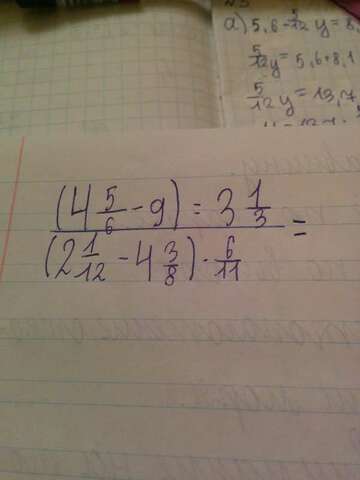 а) 5,6 - 5/12 y = 8,
5/12 y = 5,6+8,1
5/12 y = 13,7
(4 5/6 - 9) : 3 1/3
(2 1/12 - 4 3/8) · 6/11 =